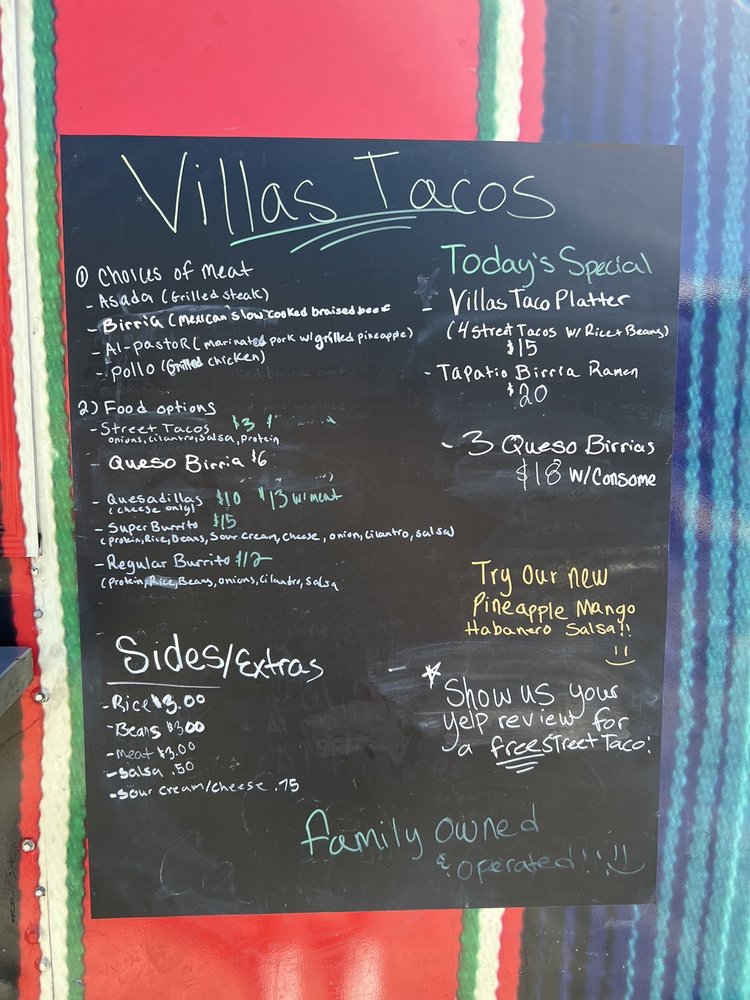 Villas Tacos
① Choices of Meat
- Asada (Grilled steak)
- Birria (Mexican slow cooked braised beef
- Al-pastor (marinated pork w/grilled pineapple)
- pollo (Grilled chicken)
2) Food options
- Street Tacos $3
onions, cilantro, salsa, Protein
- Queso Birria $6
- Quesadillas $10 $13 w/meat
(cheese only)
- Super Burrito $15
(protein, Rice, Beans, Sour cream, cheese, onion, cilantro, salsa)
- Regular Burrito $12
(Protein, Rice, Beans, onions, cilantro, Salsa
Sides/Extras
- Rice $3.00
- Beans $3.00
- Meat $3.00
- Salsa .50
- Sour cream/cheese .75
Today's Special
- Villas Taco Platter
(4 Street Tacos w/Rice + Beans)
$15
- Tapatio Birria Ramen
$20
- 3 Queso Birrias
$18 w/Consome
Try Our new
Pineapple Mango
Habanero Salsa!!
* Show us your
yelp review for
a free Street Taco!
family owned
& operated!!